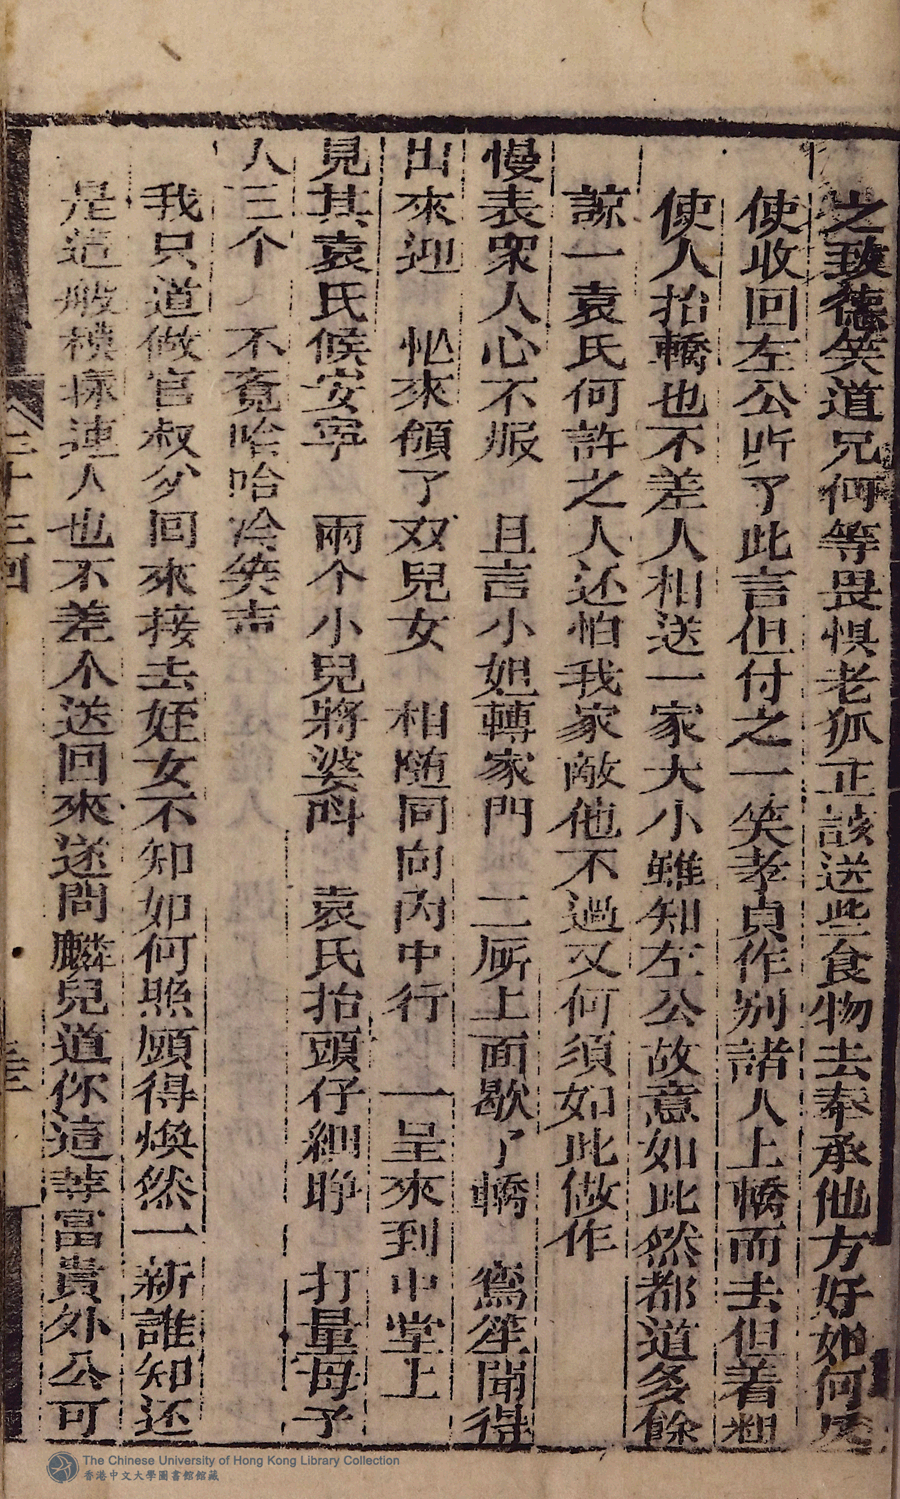 之致德笑道兄何等畏惧老狐正該送些食物去奉承他方好如何反
使收回左公听了此言但付之一笑孝貞作别諸人上轎而去但着粗
使人抬轎也不差人相送一家大小雖知左公故意如此然都道多餘
諒一袁氏何許之人还怕我家敵他不過又何須如此做作
慢表衆人心不服　且言小姐轉家門　二厛上面歇了轎　鸞笙聞得
出來迎　忙來領了双兒女　相随同向內中行　一呈來到中堂上
見其袁氏候安寧　兩个小兒將婆呌　袁氏抬頭仔細睁　打量母子
人三个　不覔哈哈冷笑声
我只道做官叔爷回來接去姪女不知如何照顧得煥然一新誰知还
是這般模樣連人也不差个送回來遂問麟兒道你這等富貴外公可
三十三回
卷三
The Chinese University of Hong Kong Library Collection
香港中文大學圖書館館藏